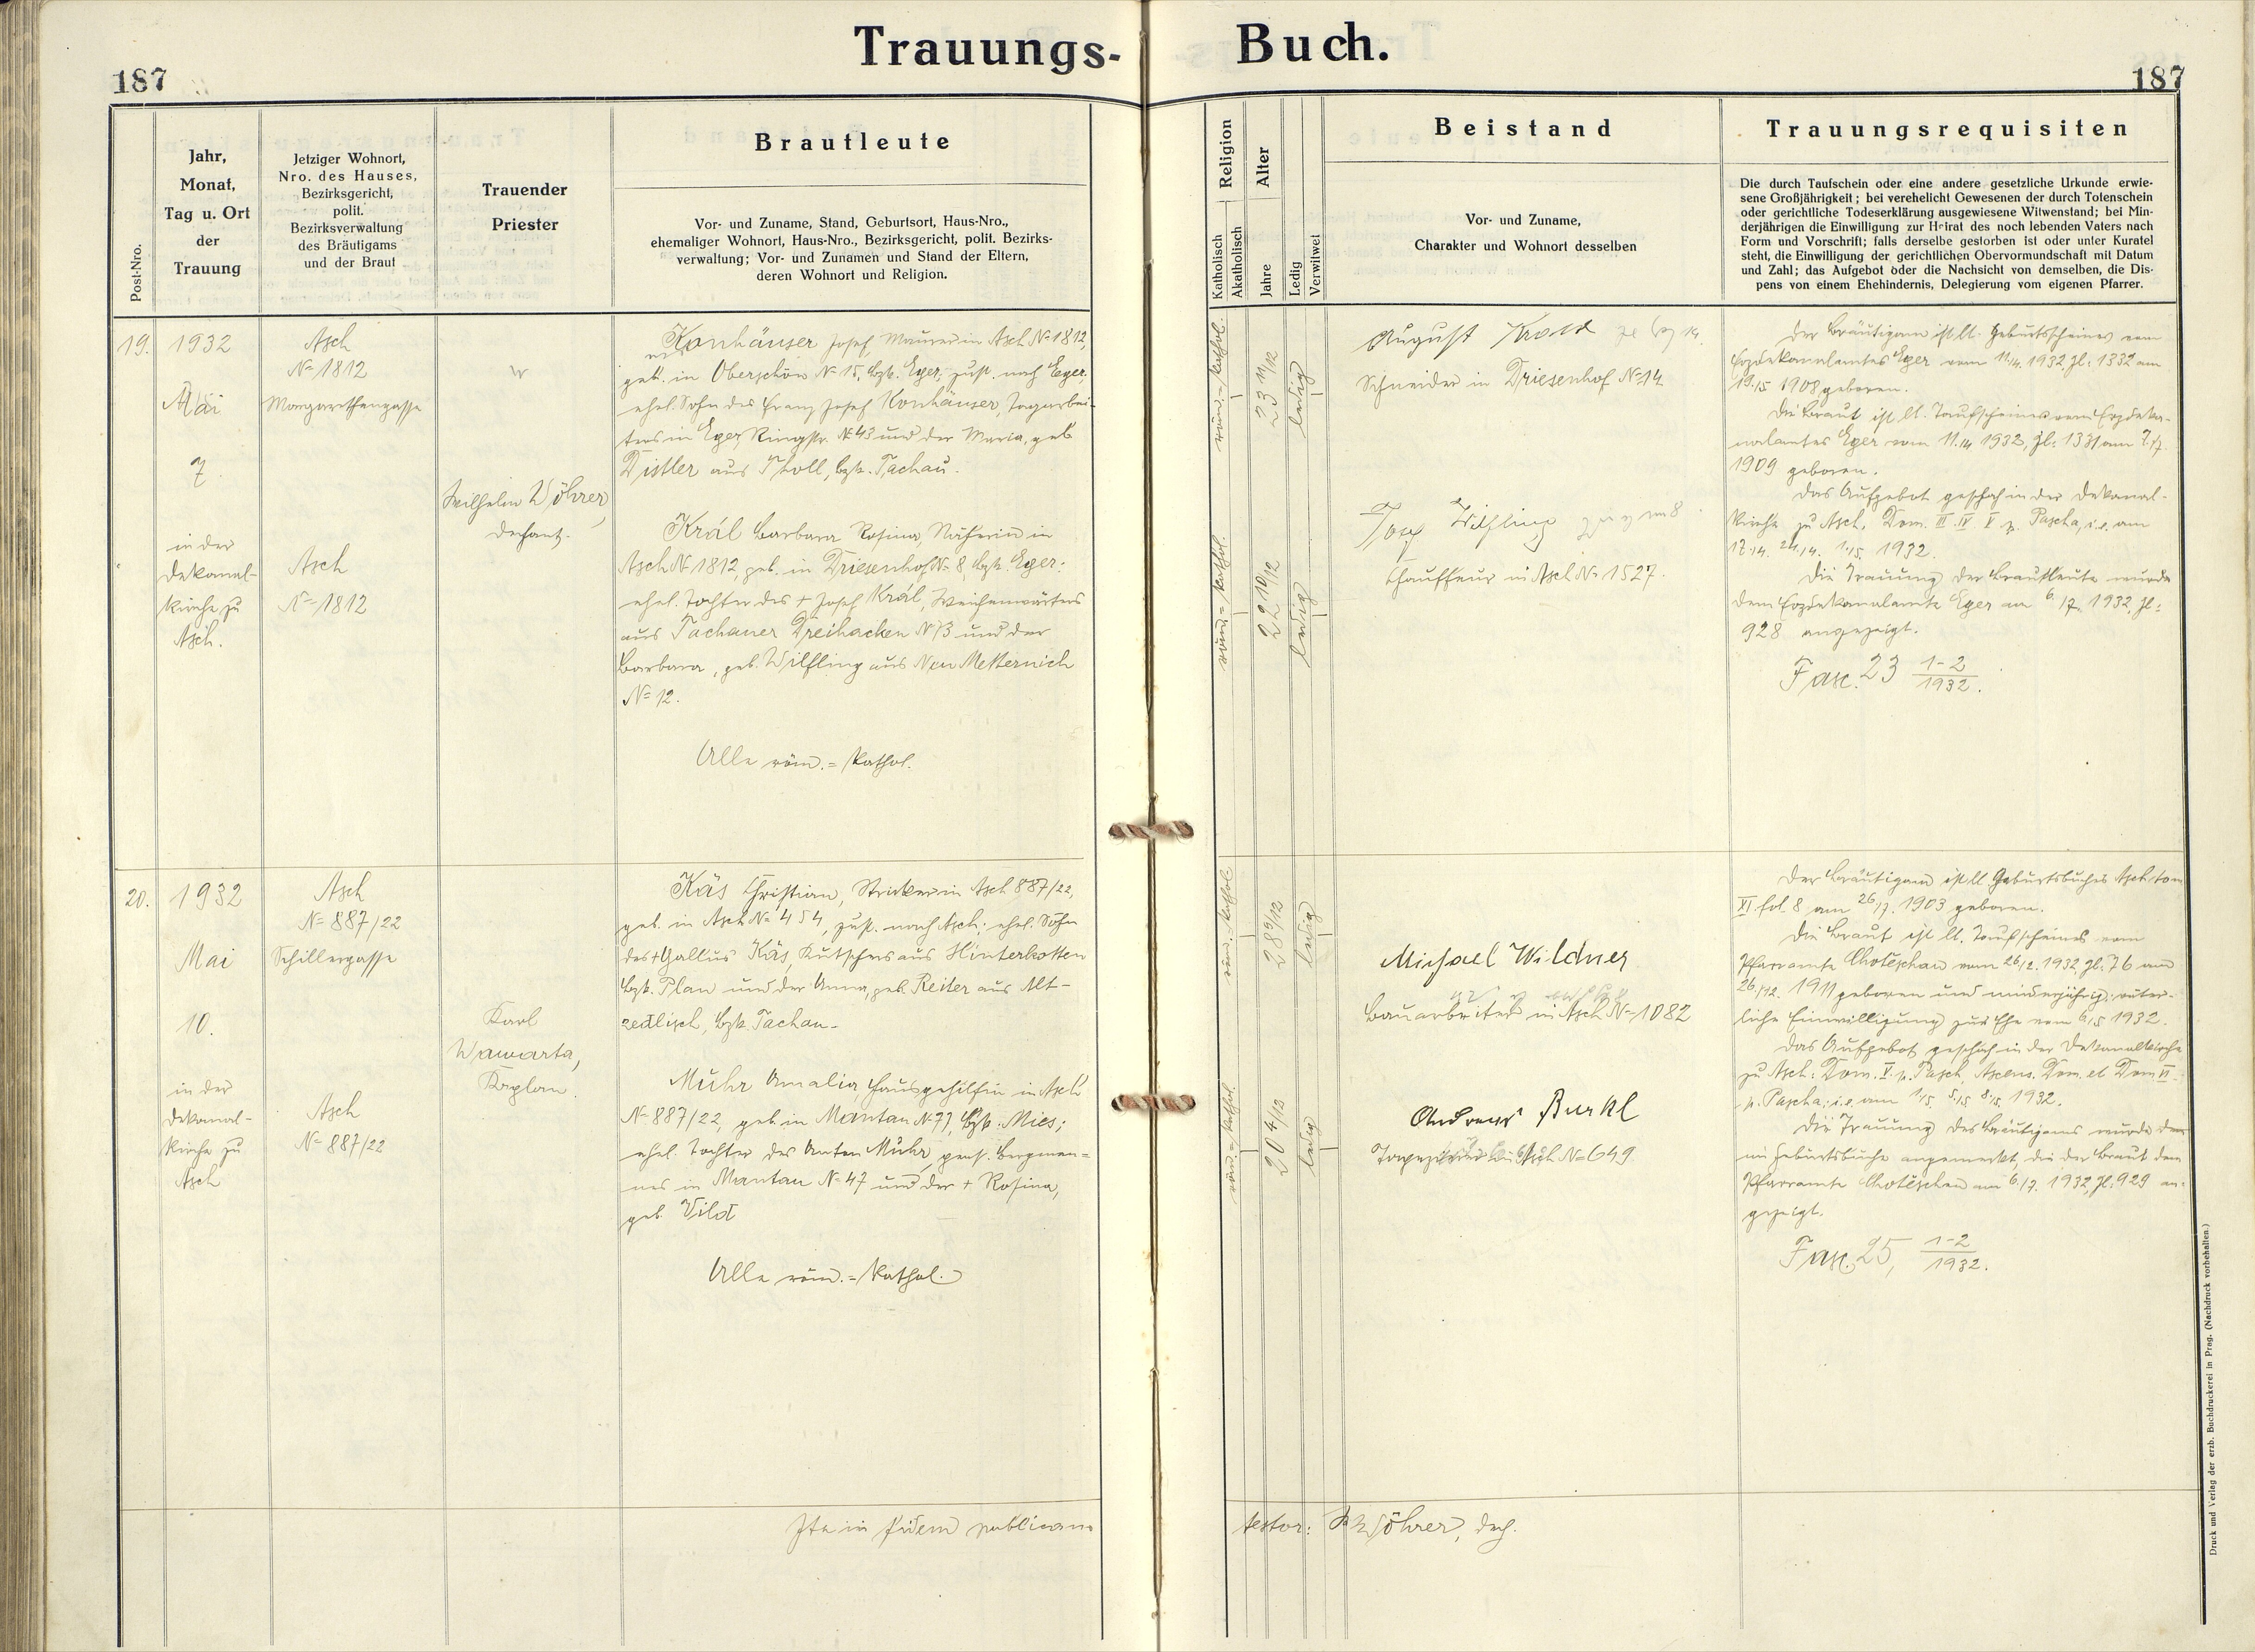 Trauungs- Buch.
187
187
Post-Nro.
Jahr,
Monat,
Tag u. Ort
der
Trauung
Jetziger Wohnort,
Nro. des Hauses,
Bezirksgericht,
polit.
Bezirksverwaltung
des Bräutigams
und der Braut
Trauender
Priester
Brautleute
Vor- und Zuname, Stand, Geburtsort, Haus-Nro.,
ehemaliger Wohnort, Haus-Nro., Bezirksgericht, polit. Bezirks-
verwaltung; Vor- und Zunamen und Stand der Eltern,
deren Wohnort und Religion.
Religion
Katholisch
Akatholisch
Alter
Jahre
Ledig
Verwitwet
Beistand
Vor- und Zuname,
Charakter und Wohnort desselben
Trauungsrequisiten
Die durch Taufschein oder eine andere gesetzliche Urkunde erwie-
sene Großjährigkeit; bei verehelicht Gewesenen der durch Totenschein
oder gerichtliche Todeserklärung ausgewiesene Witwenstand; bei Min-
derjährigen die Einwilligung zur Heirat des noch lebenden Vaters nach
Form und Vorschrift; falls derselbe gestorben ist oder unter Kuratel
steht, die Einwilligung der gerichtlichen Obervormundschaft mit Datum
und Zahl; das Aufgebot oder die Nachsicht von demselben, die Dis-
pens von einem Ehehindernis, Delegierung vom eigenen Pfarrer.
19.
1932
Mai
7.
in der
Dekanal-
kirche zu
Asch.
Asch
No 1812
Margarethengasse
Asch
No 1812
Wilhelm Wöhrer,
Dechant.
Konhäuser Josef, Maurer in Asch No 1812,
geb. in Oberschön No 15, Bzk. Eger; zust. nach Eger,
ehel. Sohn des Franz Josef Konhäuser, Tagarbei-
ters in Eger, Ringstr. No 43 und der Maria, geb
Distler aus Tholl, Bzk. Tachau.
Král Barbara Rosina, Näherin in
Asch No 1812, geb. in Driesenhof No 8, Bzk. Eger;
ehel. Tochter des + Josef Král, Weichenwärters
aus Tachauer Dreihacken No 73 und der
Barbara, geb. Wilfling aus Neu Metternich
No 12.
Alle röm.=kathol.
röm.=kathol.
23 11/12
ledig
röm.=kathol.
22 10/12
ledig
August
Schneider in Driesenhof No 14
Josef Wilfling
Chauffeur in Asch No 1527.
Der Bräutigam ist lt. Geburtsscheines vom
Erzdekanalamtes Eger vom 11./4. 1932, Zl: 1332 am
19./5 1908 geboren.
Die Braut ist lt. Taufscheines vom Erzdeka-
nalamtes Eger vom 11./4 1932, Zl: 1331 am 7./7.
1909 geboren.
Das Aufgebot geschah in der Dekanal-
kirche zu Asch, Dom. III. IV. V p. Pascha, i.e. am
17./4. 24./4. 1./5. 1932.
Die Trauung der Brautleute wurde
dem Erzdekanalamte Eger am 6./7. 1932, Zl:
928 angezeigt.
Fasc. 23 1-2/1932.
20.
1932
Mai
10.
in der
Dekanal-
kirche zu
Asch
Asch
No 887/22
Schillergasse
Asch
No 887/22
Karl
Wawarta,
Kaplan.
Käs Christian, Stricker in Asch 887/22,
geb. in Asch No 454, zust. nach Asch; ehel. Sohn
des + Gallus Käs, Kutschers aus Hinterkotten
Bzk. Plan und der Anna, geb. Reiter aus Alt-
zedlisch, Bzk. Tachau.
Muhr Amalia, Hausgehilfin in Asch
No 887/22, geb. in Mantau No 77, Bzk: Mies;
ehel. Tochter des Anton Muhr, pens. Bergman=
nes in Mantau No 47 und der + Rosina,
geb. Vild
Alle röm.=kathol.
röm.=kathol.
28 9/12
ledig
röm.=kathol.
20 4/12
ledig
Michael Wildner
Bauarbeiter in Asch No 1082
Andreas Burkl
Tapezierer in Asch No 649
Der Bräutigam ist lt. Geburtsbuches Asch tom
XI. fol. 8 am 26/7. 1903 geboren.
Die Braut ist lt. Taufscheines vom
Pfarramte Chotěschau vom 26/2. 1932 Zl: 76 am
26/12. 1911 geboren und minderjährig; väter-
liche Einwilligung zur Ehe vom 6./5 1932.
Das Aufgebot geschah in der Dekanalkirche
zu Asch: Dom. V. p. Pasch, Ascens. Dom. et Dom VI.
p. Pascha, i.e. am 1./5. 5./5 8./5. 1932.
Die Trauung des Bräutigams wurde
im Geburtsbuche angemerkt, die der Braut dem
Pfarramte Chotěschau am 6./7. 1932, Zl: 929 an-
gezeigt.
Fasc. 25, 1-2/1932.
Ita in fidem publicam testor: Wöhrer, Dech.
Druck und Verlag der erzb. Buchdruckerei in Prag. (Nachdruck vorbehalten.)